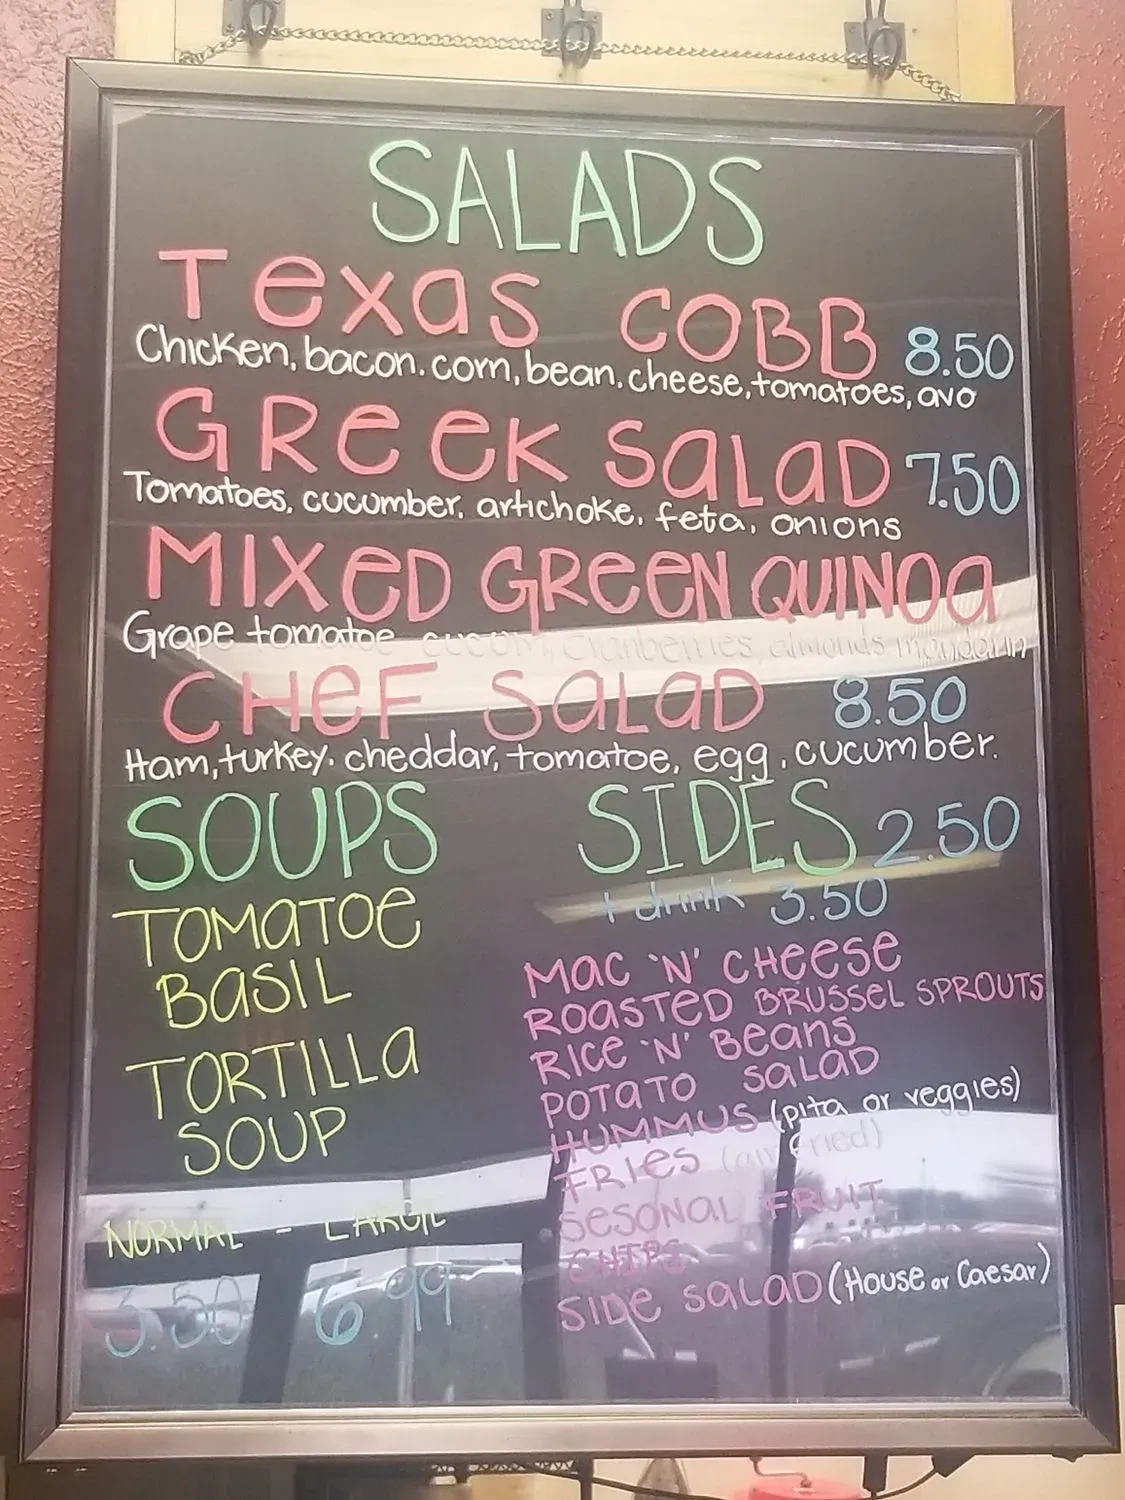 SALADS
Texas COBB 8.50
Chicken, bacon. corn, bean. cheese, tomatoes, avo
GReeK SaLaD 7.50
Tomatoes, cucumber, artichoke, feta, onions
MIXeD GReeN QUINOa
Grape tomatoe, cucum, cranberries, almonds, mandarin
CHeF SaLaD 8.50
Ham, turkey. cheddar, tomatoe, egg, cucumber.
SOUPS
TOMaTOe
BaSIL
TORTILLa
SOUP
NORMAL - LARGE
3.50 6.99
SIDES 2.50
+ drink 3.50
Mac 'N' CHeese
ROasTeD BRUSSeL SPROUTS
RICe 'N' Beans
POTaTO SaLaD
HUMMUS (pita or veggies)
FRIes (air fried)
SeSONaL FRUIT
CHIPS
SIDe SaLaD (House or Caesar)